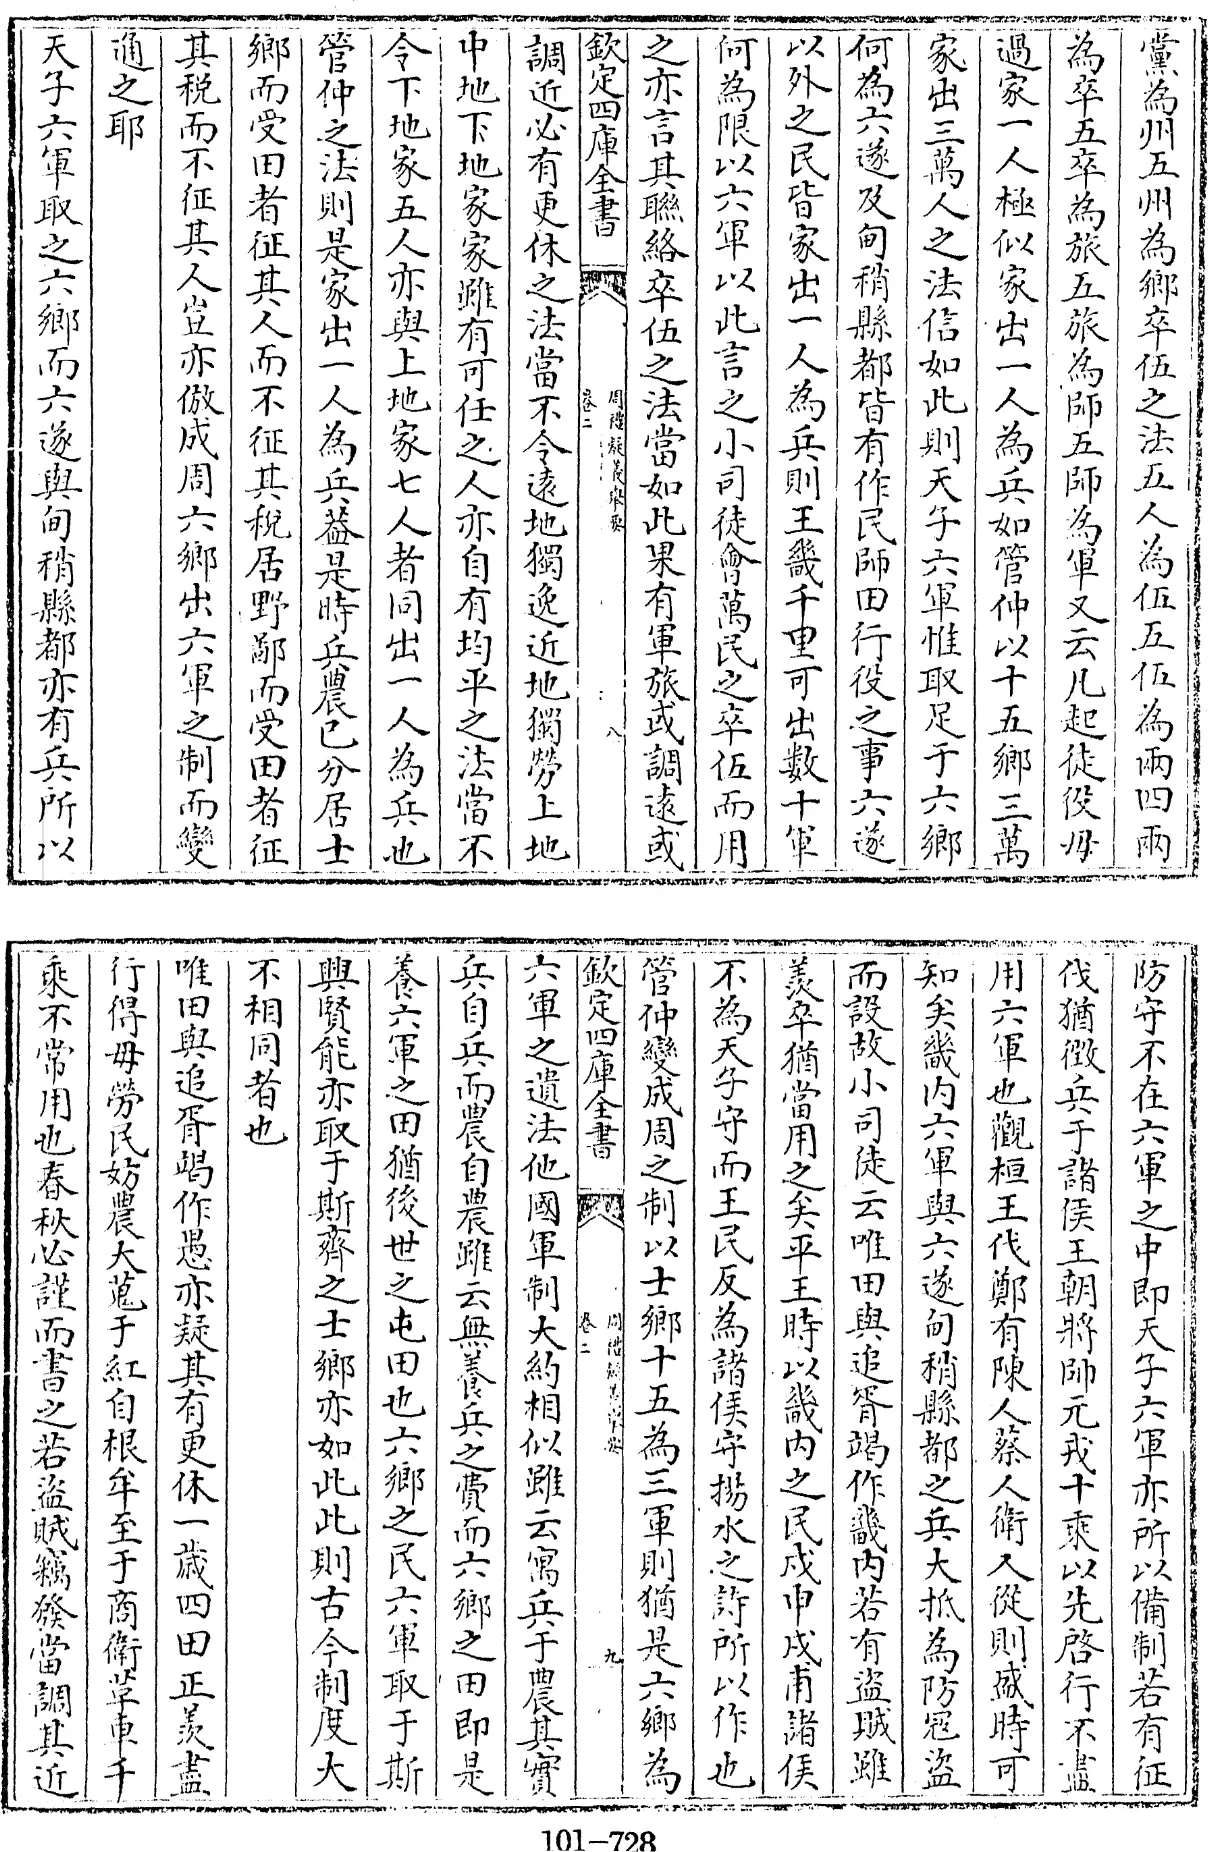 黨為州五州為鄉卒伍之法五人為伍五伍為兩四兩
為卒五卒為旅五旅為師五師為軍又云凡起徒役毋
過家一人極似家出一人為兵如管仲以十五鄉三萬
家出三萬人之法信如此則天子六軍惟取足于六鄉
何為六遂及甸稍縣都皆有作民師田行役之事六遂
以外之民皆家出一人為兵則王畿千里可出數十軍
何為限以六軍以此言之小司徒會萬民之卒伍而用
之亦言其聯絡卒伍之法當如此果有軍旅或調遠或
欽定四庫全書
周禮疑義舉要
卷二
八
調近必有更休之法當不令遠地獨逸近地獨勞上地
中地下地家家雖有可任之人亦自有均平之法當不
令下地家五人亦與上地家七人者同出一人為兵也
管仲之法則是家出一人為兵葢是時兵農已分居士
鄉而受田者征其人而不征其稅居野鄙而受田者征
其稅而不征其人豈亦倣成周六鄉出六軍之制而變
通之耶
天子六軍取之六鄉而六遂與甸稍縣都亦有兵所以
防守不在六軍之中即天子六軍亦所以備制若有征
伐猶徵兵于諸侯王朝將帥元戎十乘以先啓行不盡
用六軍也觀桓王伐鄭有陳人蔡人衛人從則盛時可
知矣畿内六軍與六遂甸稍縣都之兵大抵為防寇盜
而設故小司徒云唯田與追胥竭作畿内若有盜賊雖
羨卒猶當用之矣平王時以畿内之民戍申戍甫諸侯
不為天子守而王民反為諸侯守揚水之詩所以作也
管仲變成周之制以士鄉十五為三軍則猶是六鄉為
欽定四庫全書
周禮疑義舉要
卷二
九
六軍之遺法他國軍制大約相似雖云寓兵于農其實
兵自兵而農自農雖云無養兵之費而六鄉之田即是
養六軍之田猶後世之屯田也六鄉之民六軍取于斯
興賢能亦取于斯齊之士鄉亦如此此則古今制度大
不相同者也
唯田與追胥竭作愚亦疑其有更休一歲四田正羨盡
行得毋勞民妨農大蒐于紅自根牟至于商衛革車千
乘不常用也春秋必謹而書之若盜賊竊發當調其近
101-728